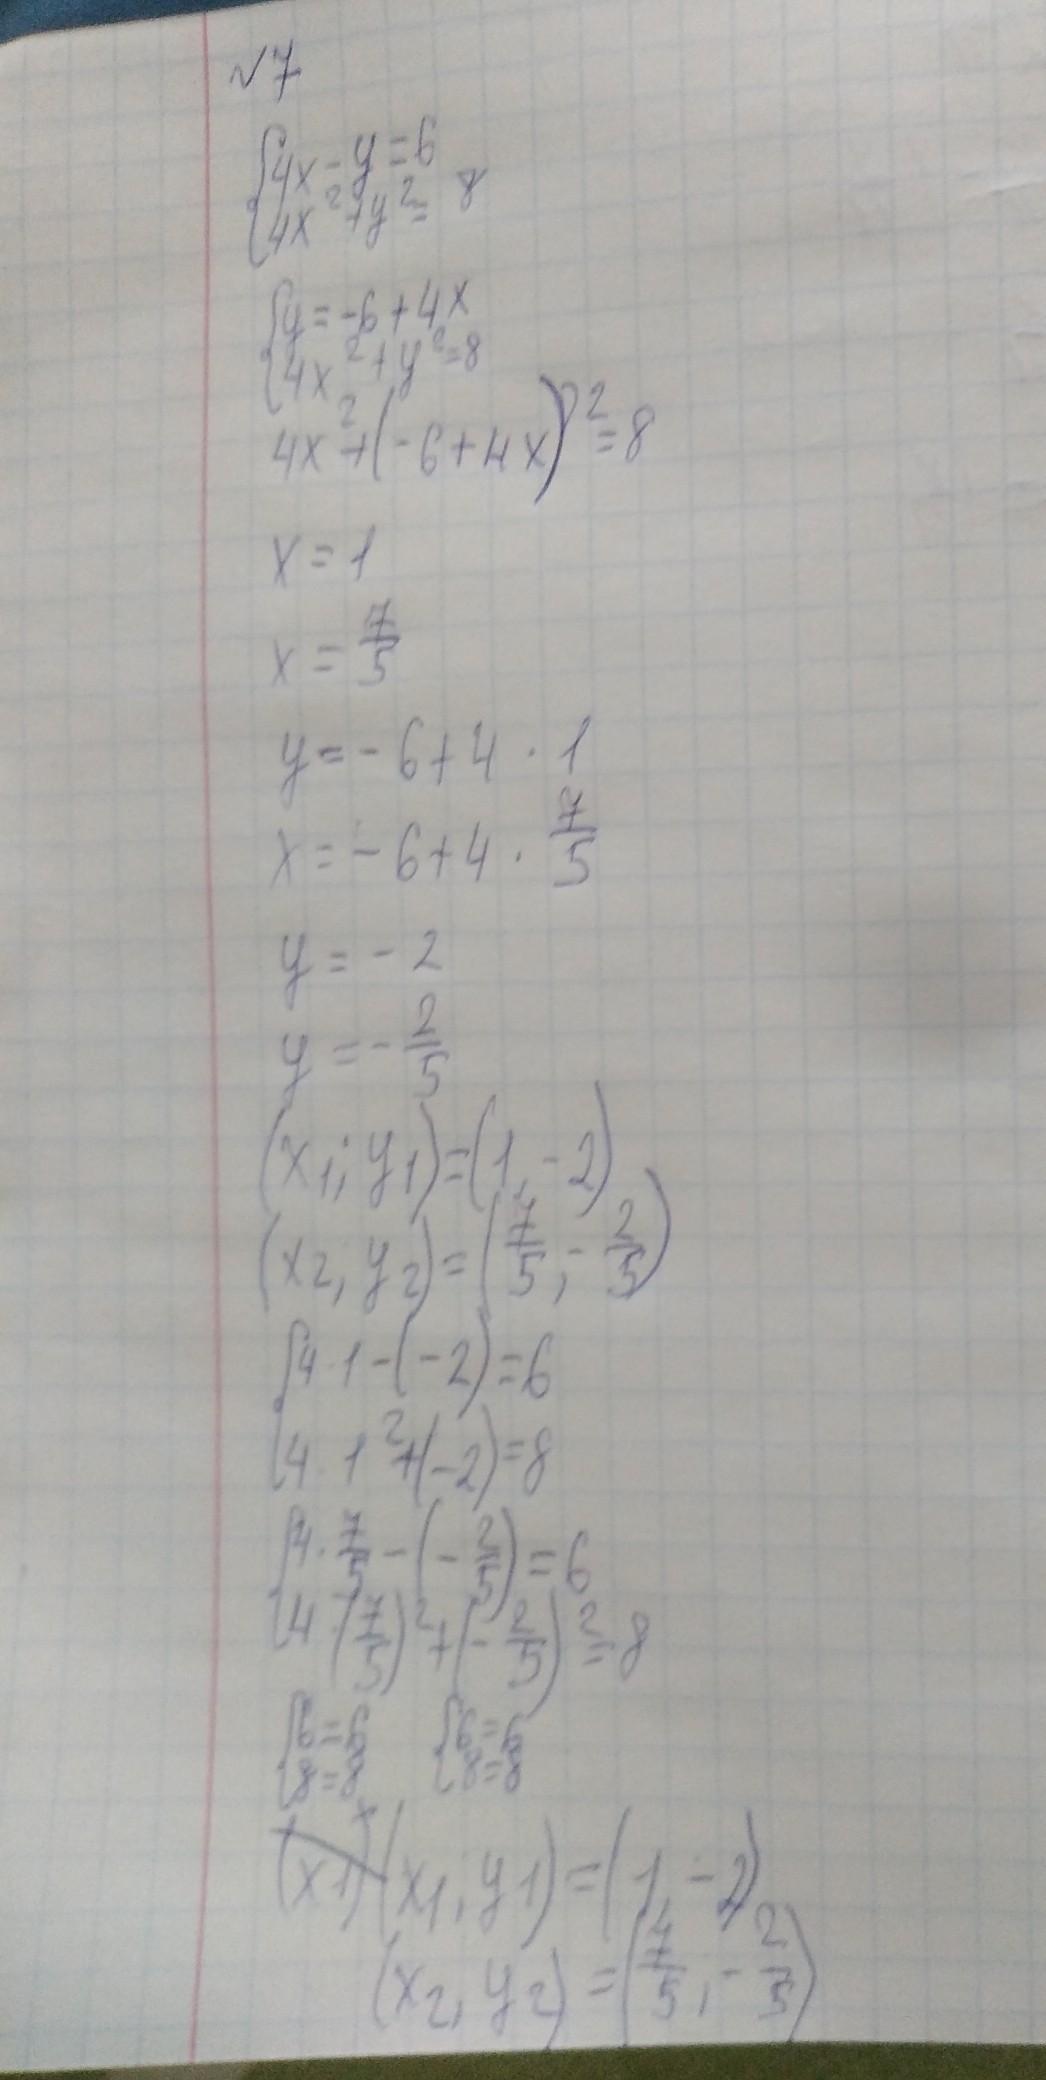 √7
{4x-y=6
{4x²+y²=8
{y=-6+4x
{4x²+y²=8
4x²+(-6+4x)²=8
x=1
x=7/5
y=-6+4·1
x=-6+4·7/5
y=-2
y=-2/5
(x1; y1)=(1,-2)
(x2, y2)=(7/5,-2/5)
{4·1-(-2)=6
{4·1²+(-2)=8
{4·7/5-(-2/5)=6
{4·(7/5)²+(-2/5)²=8
{6=6 {6=6
{8=8 {8=8
(x1) (x1, y1)=(1,-2)
(x2, y2)=(7/5,-2/5)